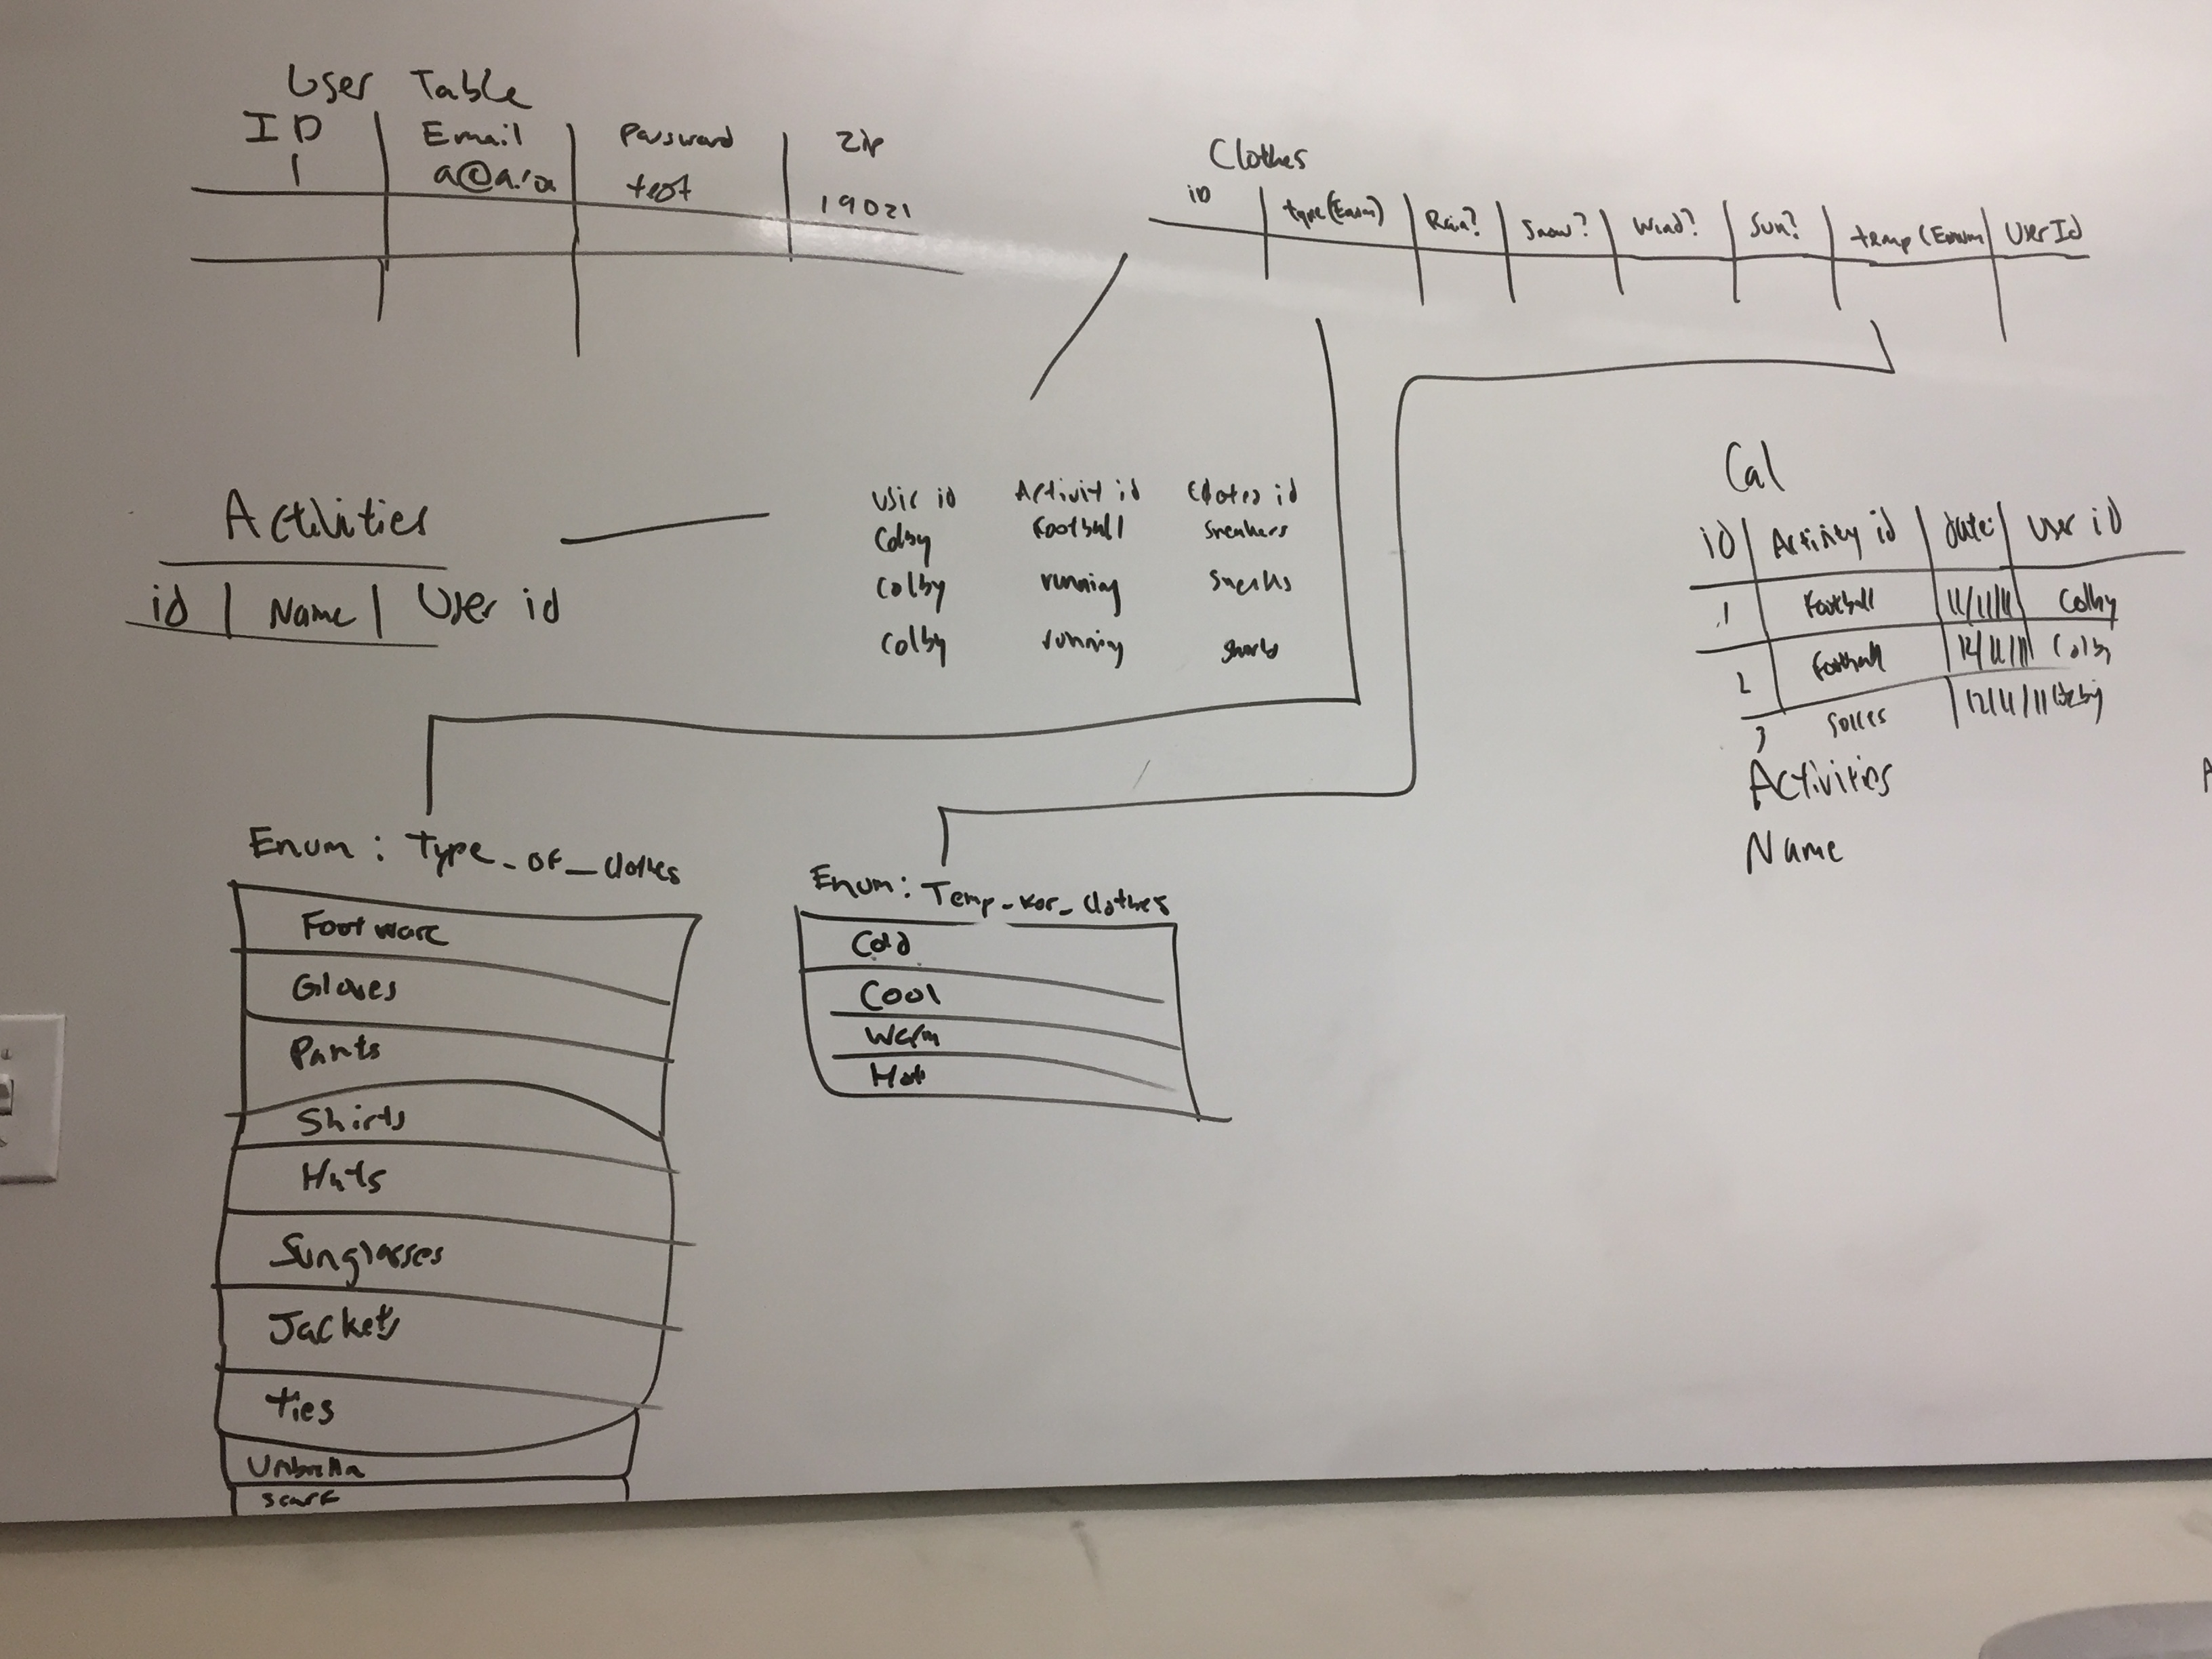 User Table
ID Email Password Zip
1 a@a.ca test 19021
Clothes
iD type(Enum) Rain? Snow? Wind? Sun? temp(Enum User Id
Activities
id Name User id
User id Activit id Clotes id
Colby Football Sneakers
Colby running
Colby running
Cal
iD Activity id date: User iD
1 Football 11/11/11 Colby
2 Football 12/11/11 Colby
3 12/11/11 Colby
Activities
Name
Enum: Type_of_clothes
Footware
Gloves
Pants
Shirts
Hats
Sunglasses
Jackets
Ties
Umbrella
scarf
Enum: Temp_for_clothes
Cold
Cool
Warm
Hot